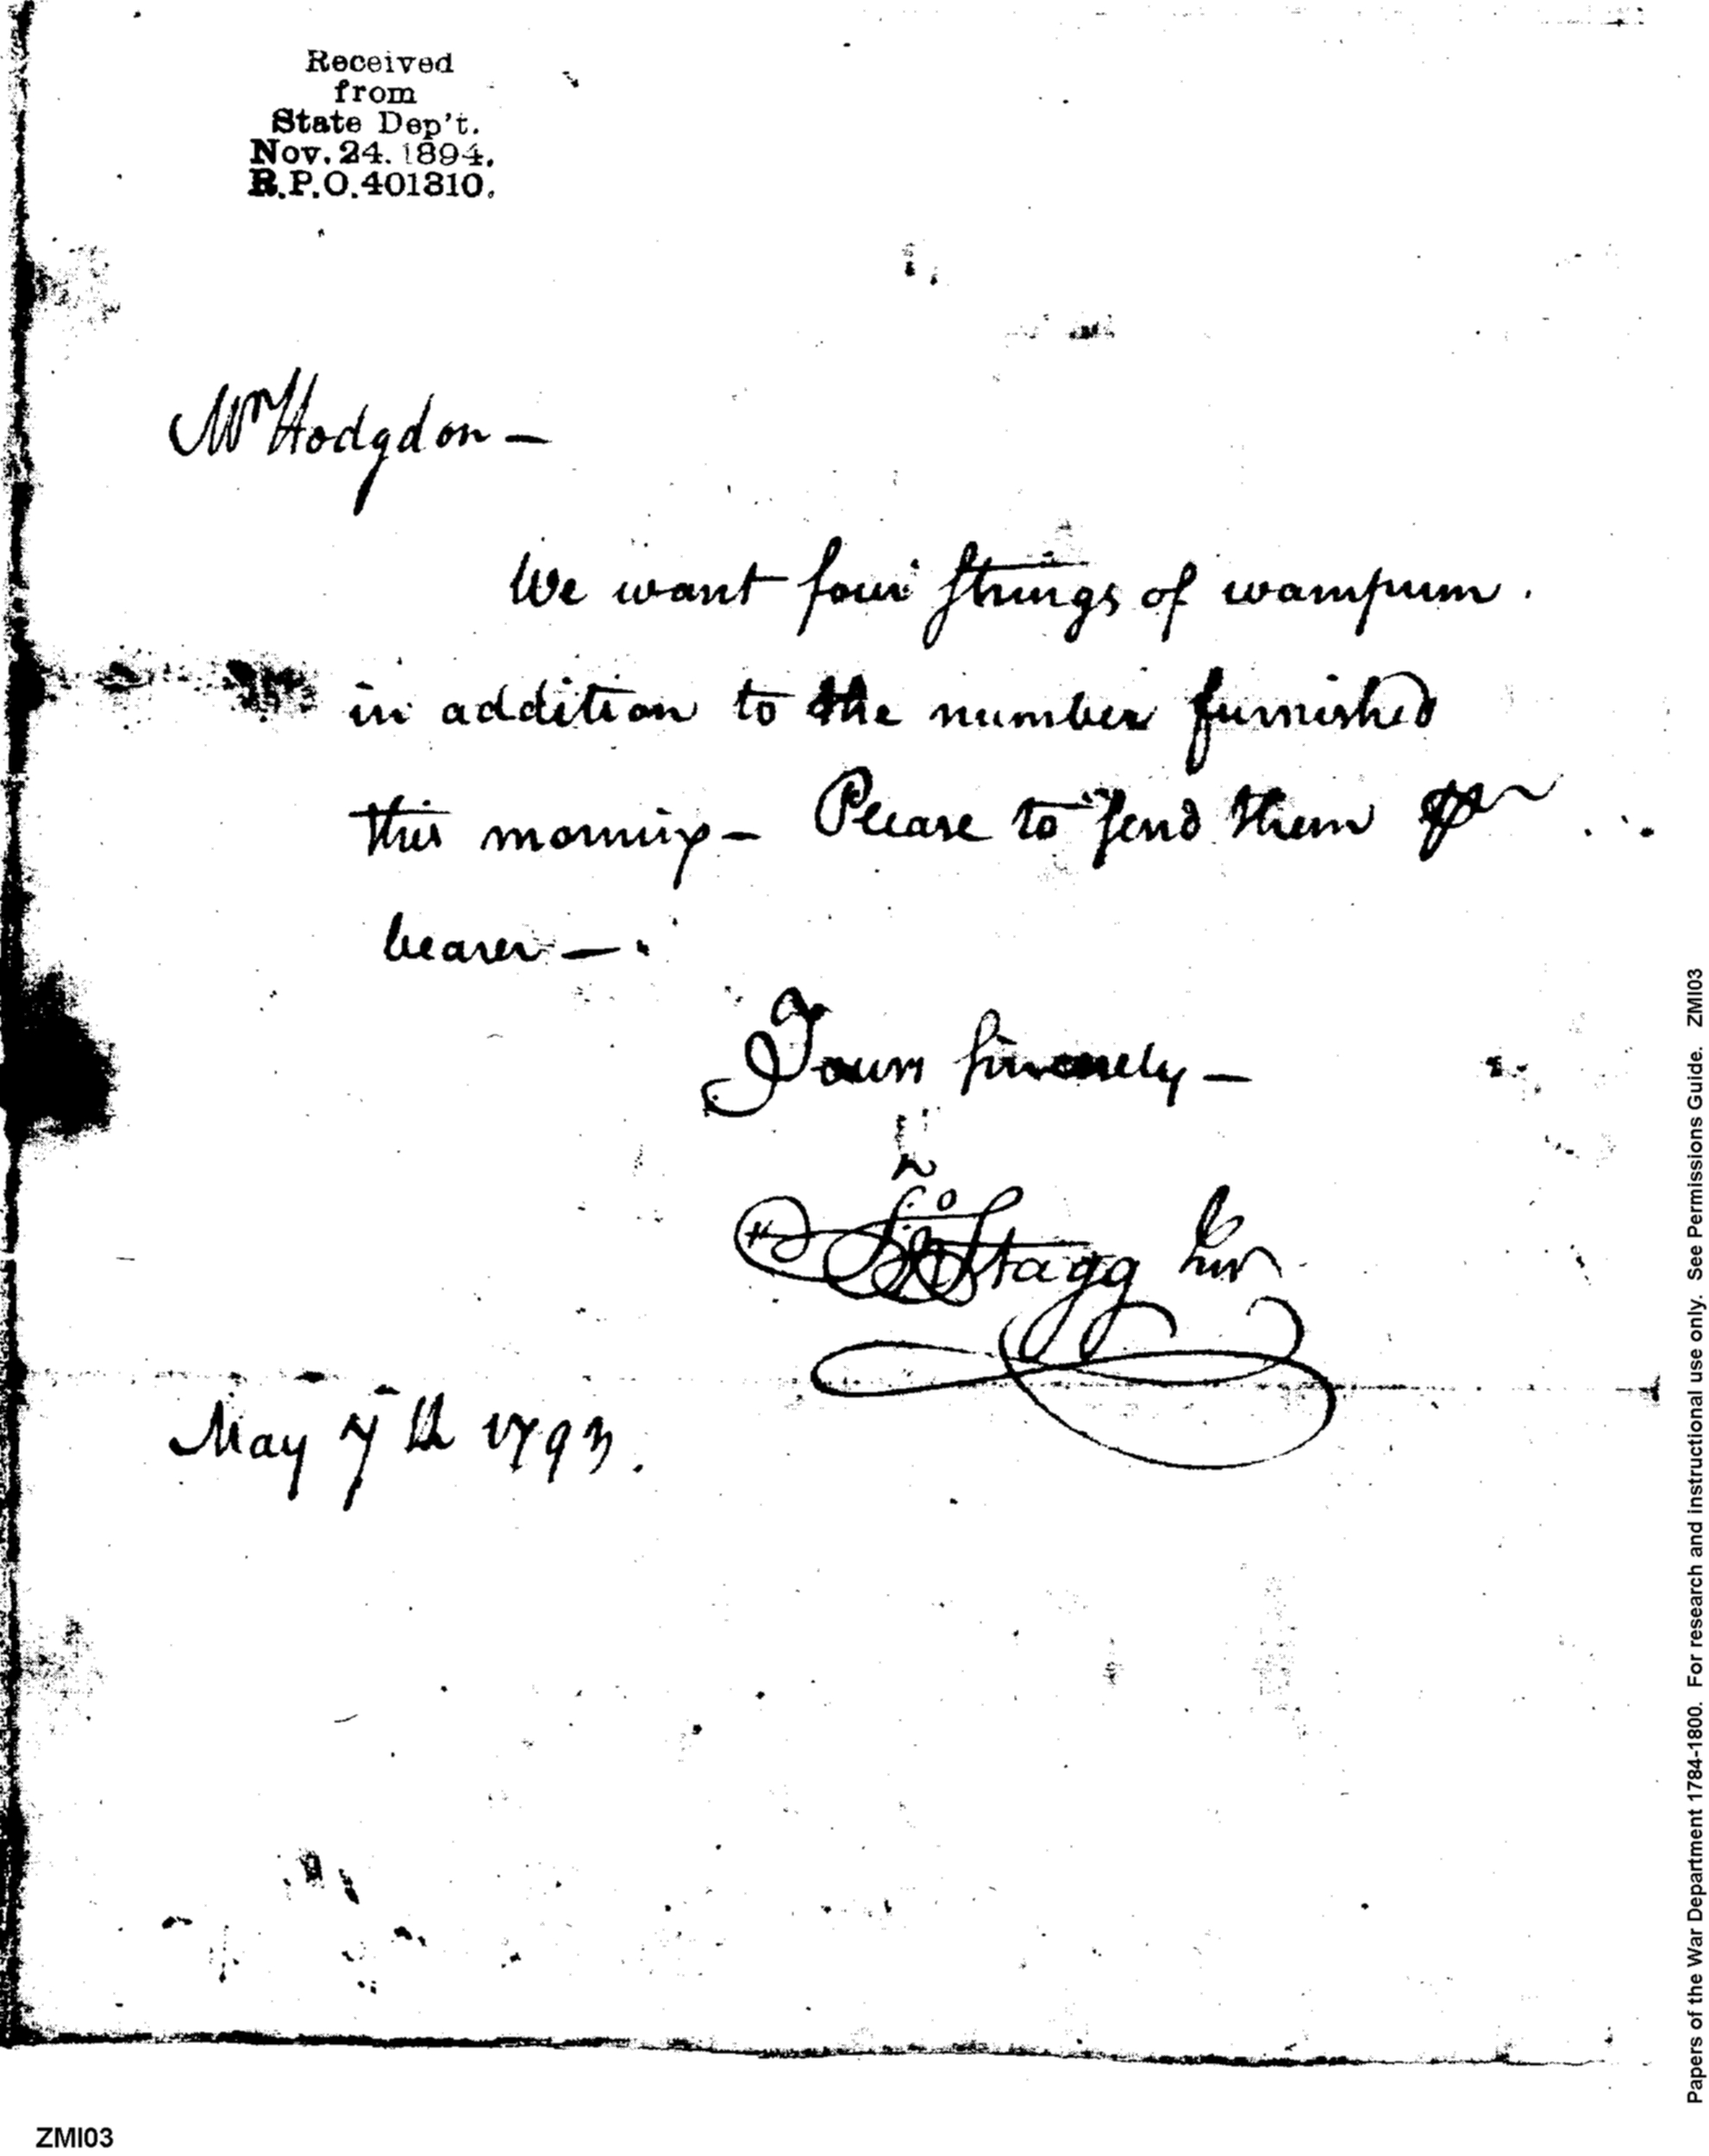 Received
from
State Dep't.
Nov. 24. 1894.
R.P.O. 401810.
Mr Hodgdon —
We want four strings of wampum.
in addition to the number furnished
this morning — Please to send them pr
bearer —
Yours sincerely —
Jno Stagg Junr
May 7th 1793.
Papers of the War Department 1784-1800. For research and instructional use only. See Permissions Guide. ZMI03
ZMI03